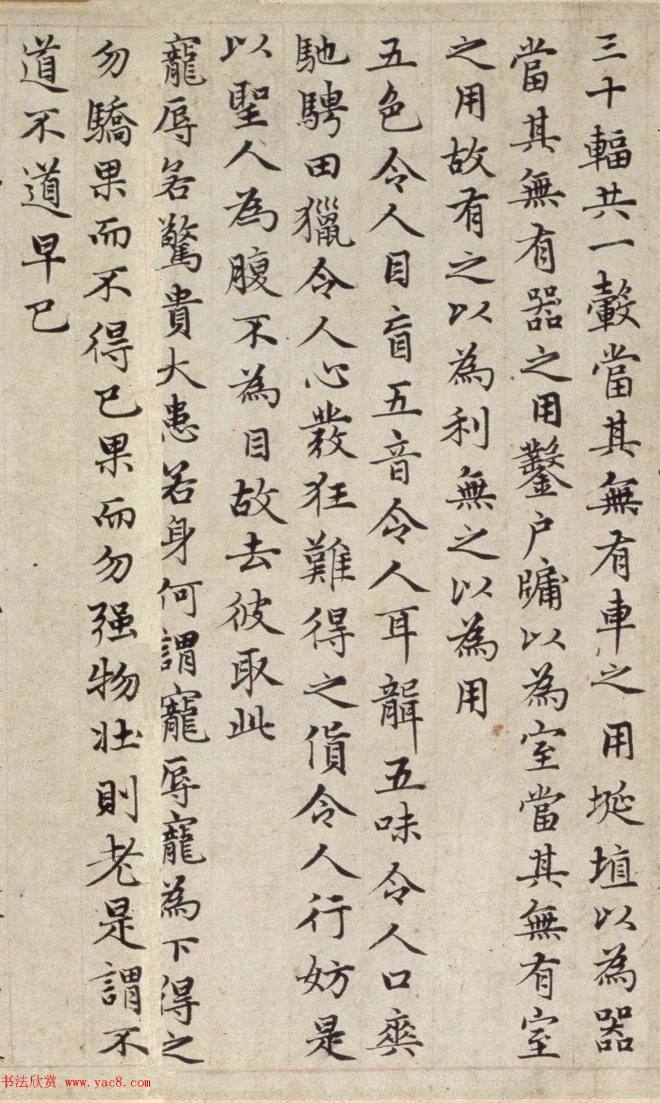 三十輻共一轂當其無有車之用埏埴以為器
當其無有器之用鑿戶牖以為室當其無有室
之用故有之以為利無之以為用
五色令人目盲五音令人耳聾五味令人口爽
馳騁田獵令人心發狂難得之貨令人行妨是
以聖人為腹不為目故去彼取此
寵辱若驚貴大患若身何謂寵辱寵為下得之
勿驕果而不得已果而勿强物壯則老是謂不
道不道早已
书法欣赏 www.yac8.com